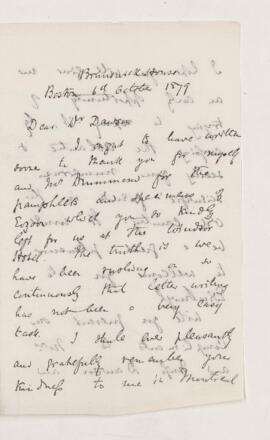 Brunswick House
Boston 6th October 1879
Dear Dr Dawson
I ought to have written
soon to thank you for myself
and Mr Drummond for the
pamphlets and specimens of
Eozoon which you so kindly
left for us at the Windsor
Hotel. The truth is we
have been so
continuously that letter writing
has not been a very easy
task. I shall ever pleasantly
and gratefully remember your
kindness to me in Montreal